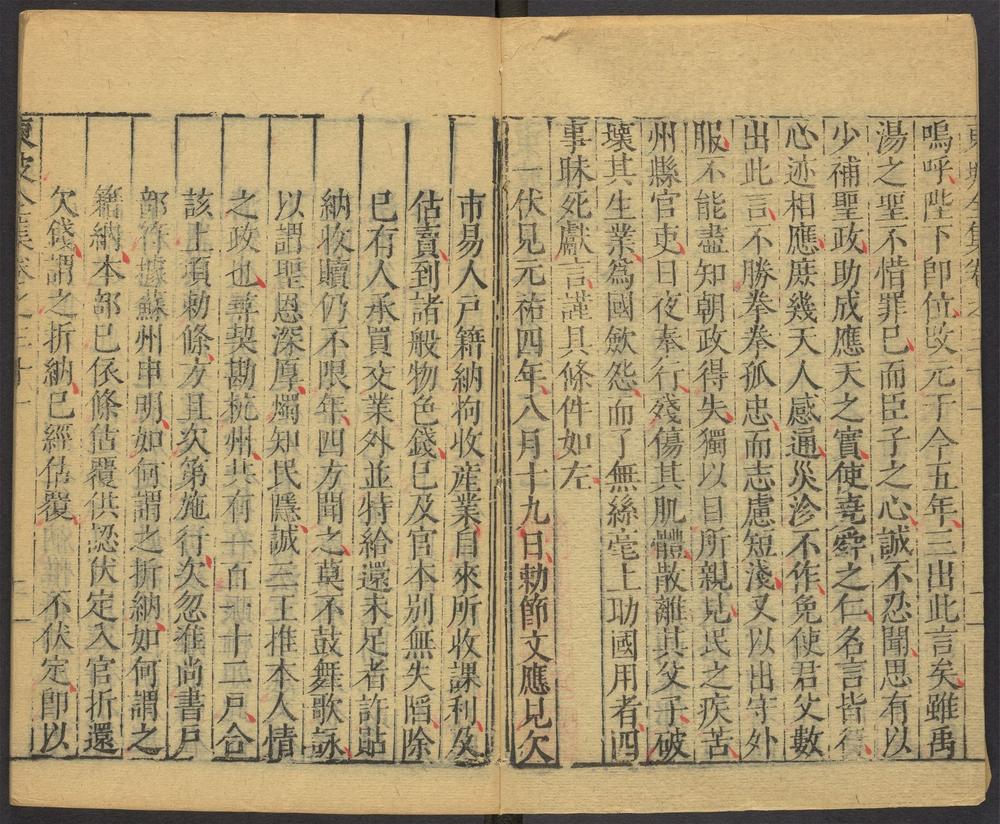 東坡全集卷之
嗚呼陛下卽位改元于今五年三出此言矣雖禹
湯之聖不惜罪巳而臣子之心誠不忍聞思有以
少補聖政助成應天之實使堯舜之仁名言皆行
心迹相應庶幾天人感通災沴不作免使君父數
出此言不勝拳拳孤忠而志慮短淺又以出守外
服不能盡知朝政得失獨以目所親見民之疾苦
州縣官吏日夜奉行殘傷其肌體散離其父子破
壞其生業爲國歛怨而了無絲毫上助國用者四
事昧死獻言謹具條件如左
一伏見元祐四年八月十九日勅節文應見欠
市易人戶籍納拘收産業自來所收課利及
估賣到諸般物色錢巳及官本别無失䧟除
巳有人承買交業外並特給還未足者許貼
納收贖仍不限年四方聞之莫不鼓舞歌詠
以謂聖恩深厚燭知民隱誠三王推本人情
之政也尋契勘杭州共有一百 十二戶合
該上項勅條方且次第施行欠忽准尚書戶
部符據蘇州申明如何謂之折納如何謂之
籍納本部巳依條估覆供認伏定入官折還
欠錢謂之折納巳經估覆 不伏定卽以
東坡全集卷之三十